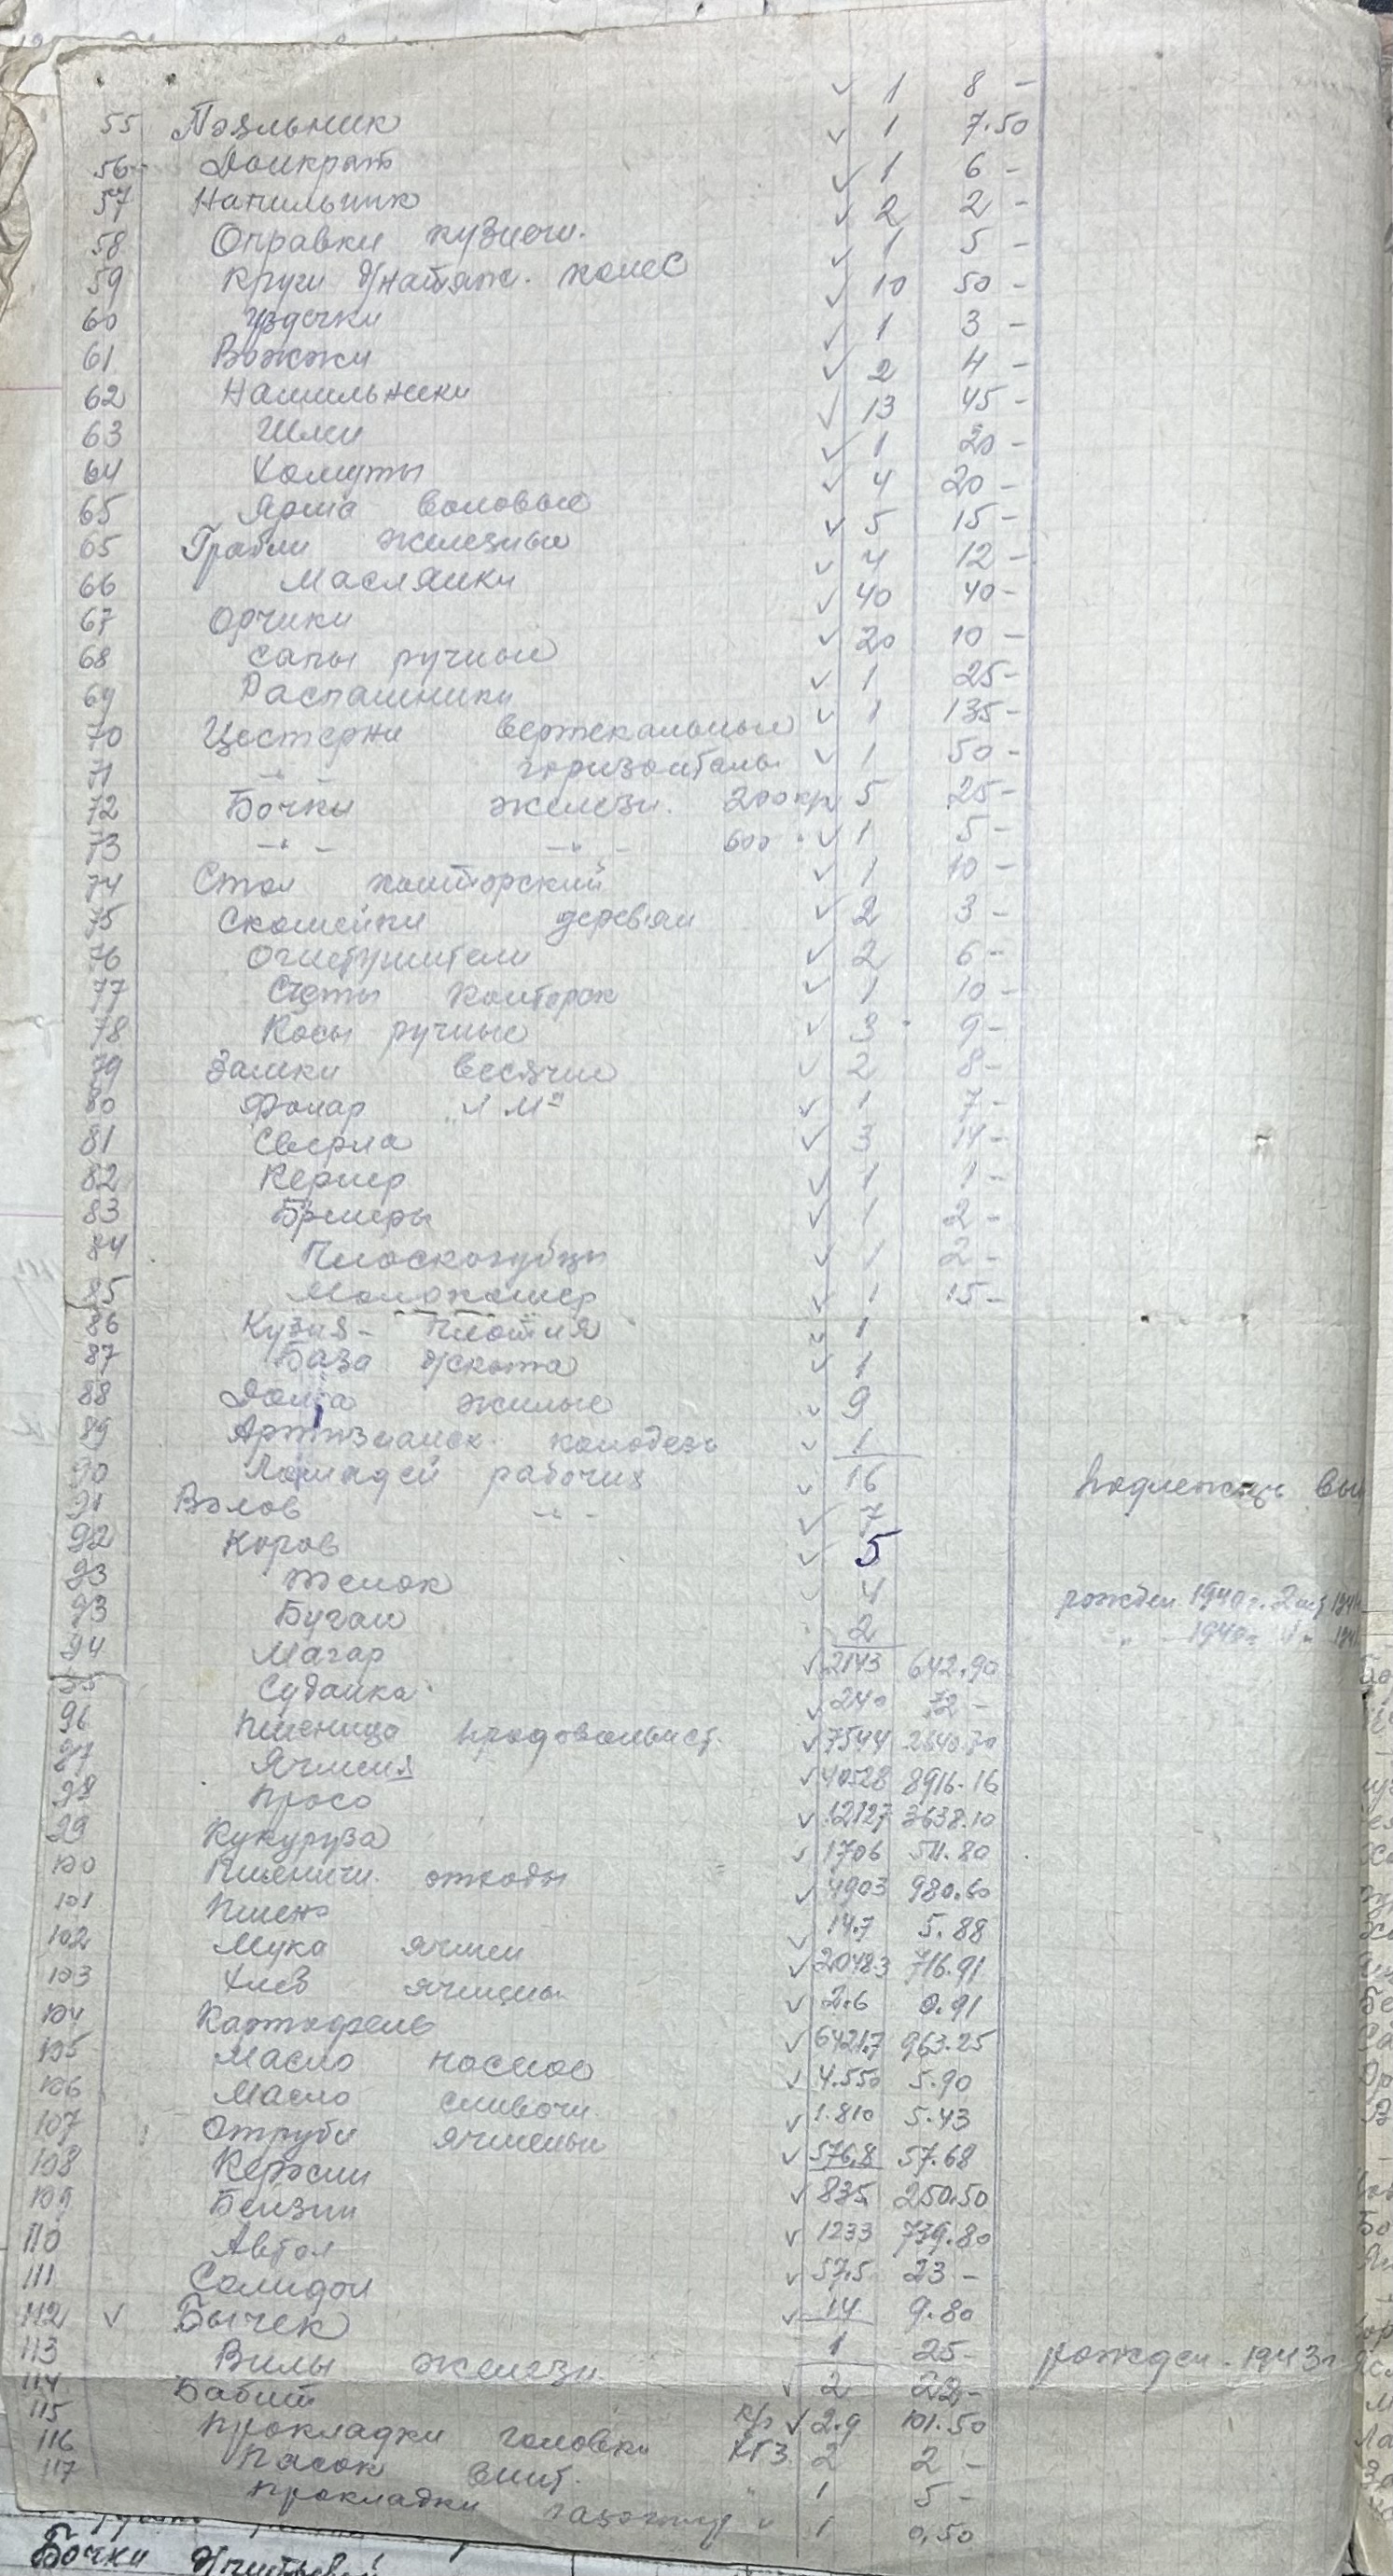 55 Паяльник ✓ 1 8 -
56 Домкрат ✓ 1 7.50
57 Напильник ✓ 1 6 -
58 Оправки кузнечн. ✓ 2 2 -
59 Круги д/натяж. колес ✓ 1 5 -
60 Уздечки ✓ 10 50 -
61 Вожжи ✓ 1 3 -
62 Нашильники ✓ 2 4 -
63 Шлеи ✓ 13 45 -
64 Хомуты ✓ 1 20 -
65 Ярма воловые ✓ 4 20 -
65 Грабли железные ✓ 5 15 -
66 Маслянки ✓ 4 12 -
67 Орчики ✓ 40 40 -
68 Сапы ручные ✓ 20 10 -
69 Распашники ✓ 1 25 -
70 Цестерни вертекальные ✓ 1 135 -
71 -"- горизонталь ✓ 1 50 -
72 Бочки железн. 200 кг 5 25 -
73 -"- -"- 600 " ✓ 1 5 -
74 Стол конторский ✓ 1 10 -
75 Скамейки деревян ✓ 2 3 -
76 Огнетушители ✓ 2 6 -
77 Счеты конторск ✓ 1 10 -
78 Косы ручные ✓ 3 9 -
79 Замки весячие ✓ 2 8 -
80 Фонар „Л М" ✓ 1 7 -
81 Сверла ✓ 3 14 -
82 Кернер ✓ 1 1 -
83 ✓ 1 2 -
84 Плоскогубцы ✓ 1 2 -
85 Молокомер ✓ 1 15 -
86 Кузня - плотня ✓ 1
87 База д/скота ✓ 1
88 Дома жилые ✓ 9
89 Артизианск. колодезь ✓ 1
90 Лошадей рабочих ✓ 16 подлежащ
91 Волов -"- ✓ 7
92 Коров ✓ 5
93 Телок ✓ 4 рожден. 1940 г. 2
93 Бугаи 2 " 1940 г.
94 Магар ✓ 2143 642.90
95 Суданка ✓ 240 72 -
96 Пшеница продовольст. ✓ 7544 2640.70
97 Ячменя ✓ 40528 8916.16
98 Просо ✓ 12127 3638.10
99 Кукуруза ✓ 1706 511.80
100 Пшеничн. отходы ✓ 4903 980.60
101 Пшено ✓ 14.7 5.88
102 Мука ячмен ✓ 2048.3 716.91
103 Хлеб ячменн ✓ 2.6 0.91
104 Картофель ✓ 6421.7 963.25
105 Масло посное ✓ 4.550 5.90
106 Масло сливочн. ✓ 1.810 5.43
107 Отруби ячменные ✓ 576.8 57.68
108 Керосин ✓ 835 250.50
109 Бензин ✓ 1233 739.80
110 Автол ✓ 57.5 23 -
111 Солидол ✓ 14 9.80
112 ✓ Бычек 1 25 - рожден. 1943 г
113 Вилы железн. ✓ 2 22 -
114 Бабит ✓ 2.9 101.50
115 Прокладки головки ХТЗ 2 2 -
116 Пасок вент. " 1 5 -
117 Прокладки " 1 0.50
Бочки